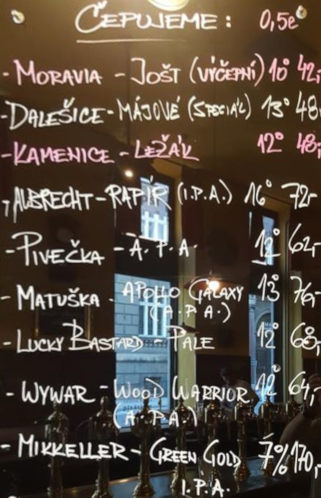 ČEPUJEME: 0,5ℓ
- MORAVIA - JOŠT (VÝČEPNÍ) 10° 42,-
- DALEŠICE - MÁJOVÉ (SPECIÁL) 13° 48,-
- KAMENICE - LEŽÁK 12° 48,-
- ALBRECHT - RAPIR (I.P.A.) 16° 72,-
- PIVEČKA - A.P.A. 12° 62,-
- MATUŠKA - APOLLO GALAXY 13° 76,-
(A.P.A.)
- LUCKY BASTARD - PALE 12° 68,-
- WYWAR - WOOD WARRIOR 12° 64,-
(A.P.A.)
- MIKKELLER - GREEN GOLD 7% 170,-
I.P.A.